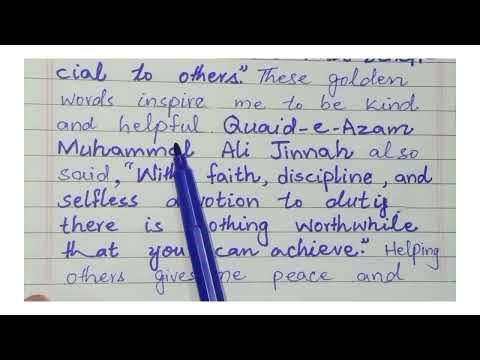 cial to others." These golden
words inspire me to be kind
and helpful. Quaid-e-Azam
Muhammad Ali Jinnah also
said, "With faith, discipline, and
selfless devotion to duty,
there is nothing worthwhile
that you can achieve." Helping
others gives me peace and